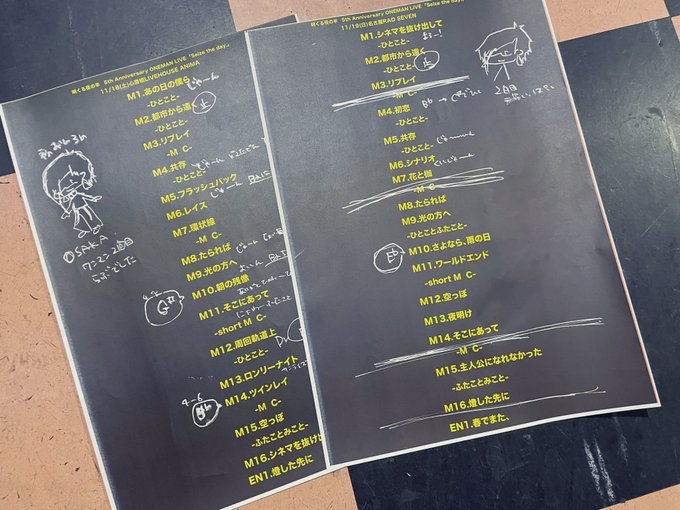 明くる夜の羊 5th Anniversary ONEMAN LIVE 「Seize the day」
11/18(土)心斎橋LIVEHOUSE ANIMA
M1.あの日の僕ら
-ひとこと-
M2.都市から遠く
止
-ひとこと-
M3.リプレイ
-M C-
M4.共存
-ひとこと-
M5.フラッシュバック
M6.レイス
M7.環状線
-M C-
M8.たられば
M9.光の方へ
M10.朝の残像
M11.そこにあって
-short M C-
M12.周回軌道上
-ひとこと-
M13.ロンリーナイト
M14.ツインレイ
-M C-
M15.空っぽ
-ふたことみこと-
M16.シネマを抜け出
EN1.燈した先に
OSAKA
ワンマン2回目
らぶでした
4-6
明くる夜の羊 5th Anniversary ONEMAN LIVE 「Seize the day」
11/19(日)名古屋RAD SEVEN
M1.シネマを抜け出して
-ひとこと-
M2.都市から遠く
止
-ひとこと-
M3.リプレイ
-M C-
M4.初恋
-ひとこと-
M5.共存
-ひとこと-
M6.シナリオ
M7.花と枷
-M C-
M8.たられば
M9.光の方へ
-ひとことふたこと-
M10.さよなら、雨の日
M11.ワールドエンド
-short M C-
M12.空っぽ
M13.夜明け
M14.そこにあって
-M C-
M15.主人公になれなかった
-ふたことみこと-
M16.燈した先に
EN1.春でまた、
2日目